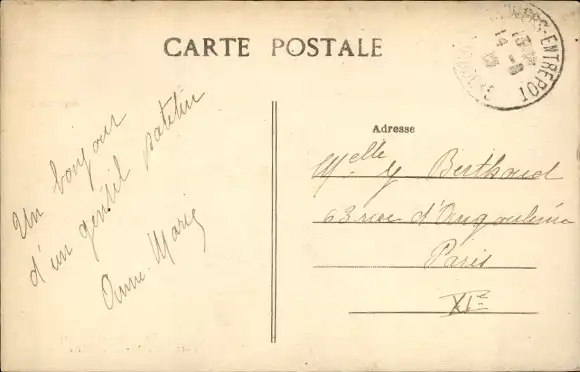 CARTE POSTALE
-ENTREPOT
Un bonjour
d'un gentil patelin
Anne-Marie
Adresse
Melle Y Berthaud
63 rue d'Angoulème
Paris
XIe